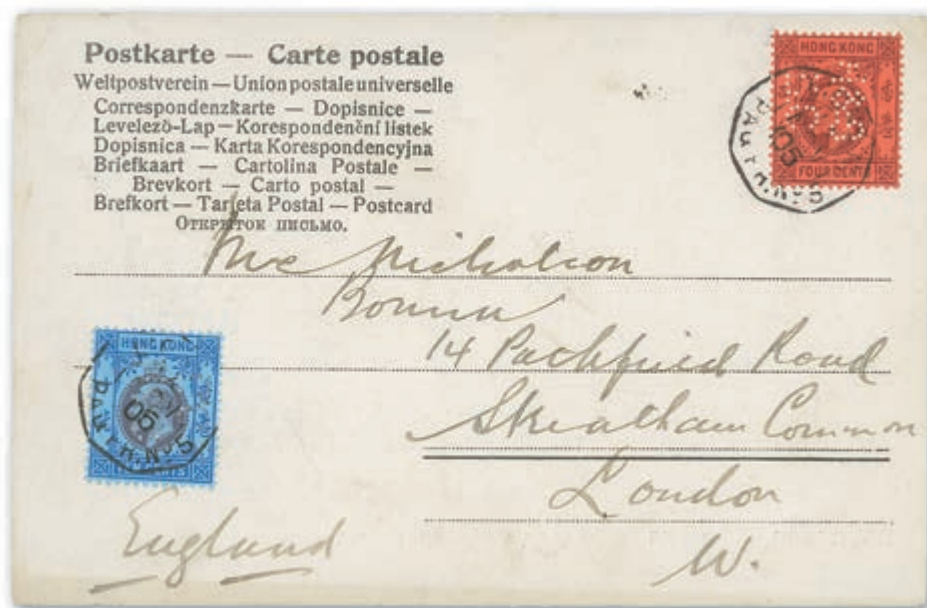 Postkarte — Carte postale
Weltpostverein — Union postale universelle
Correspondenzkarte — Dopisnice —
Levelező-Lap — Korespondenční lístek
Dopisnica — Karta Korespondencyjna
Briefkaart — Cartolina Postale —
Brevkort — Carto postal —
Brefkort — Tarjeta Postal — Postcard
Открытое письмо.
HONG KONG
FOUR CENTS
05
PAQT. H. No. 5
Nicholson
14 Road
Streatham Common
London
W.
England
HONG KONG
05
PAQT. H. No. 5